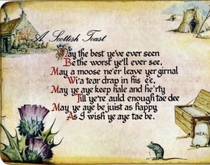 A Scottish Toast
May the best ye've ever seen
Be the worst ye'll ever see,
May a moose ne'er leave yer girnal
Wi' a tear drap in his e'e,
May ye aye keep hale and he'rty
Till ye're auld enough tae dee
May ye aye be juist as happy
As I wish ye aye tae be.